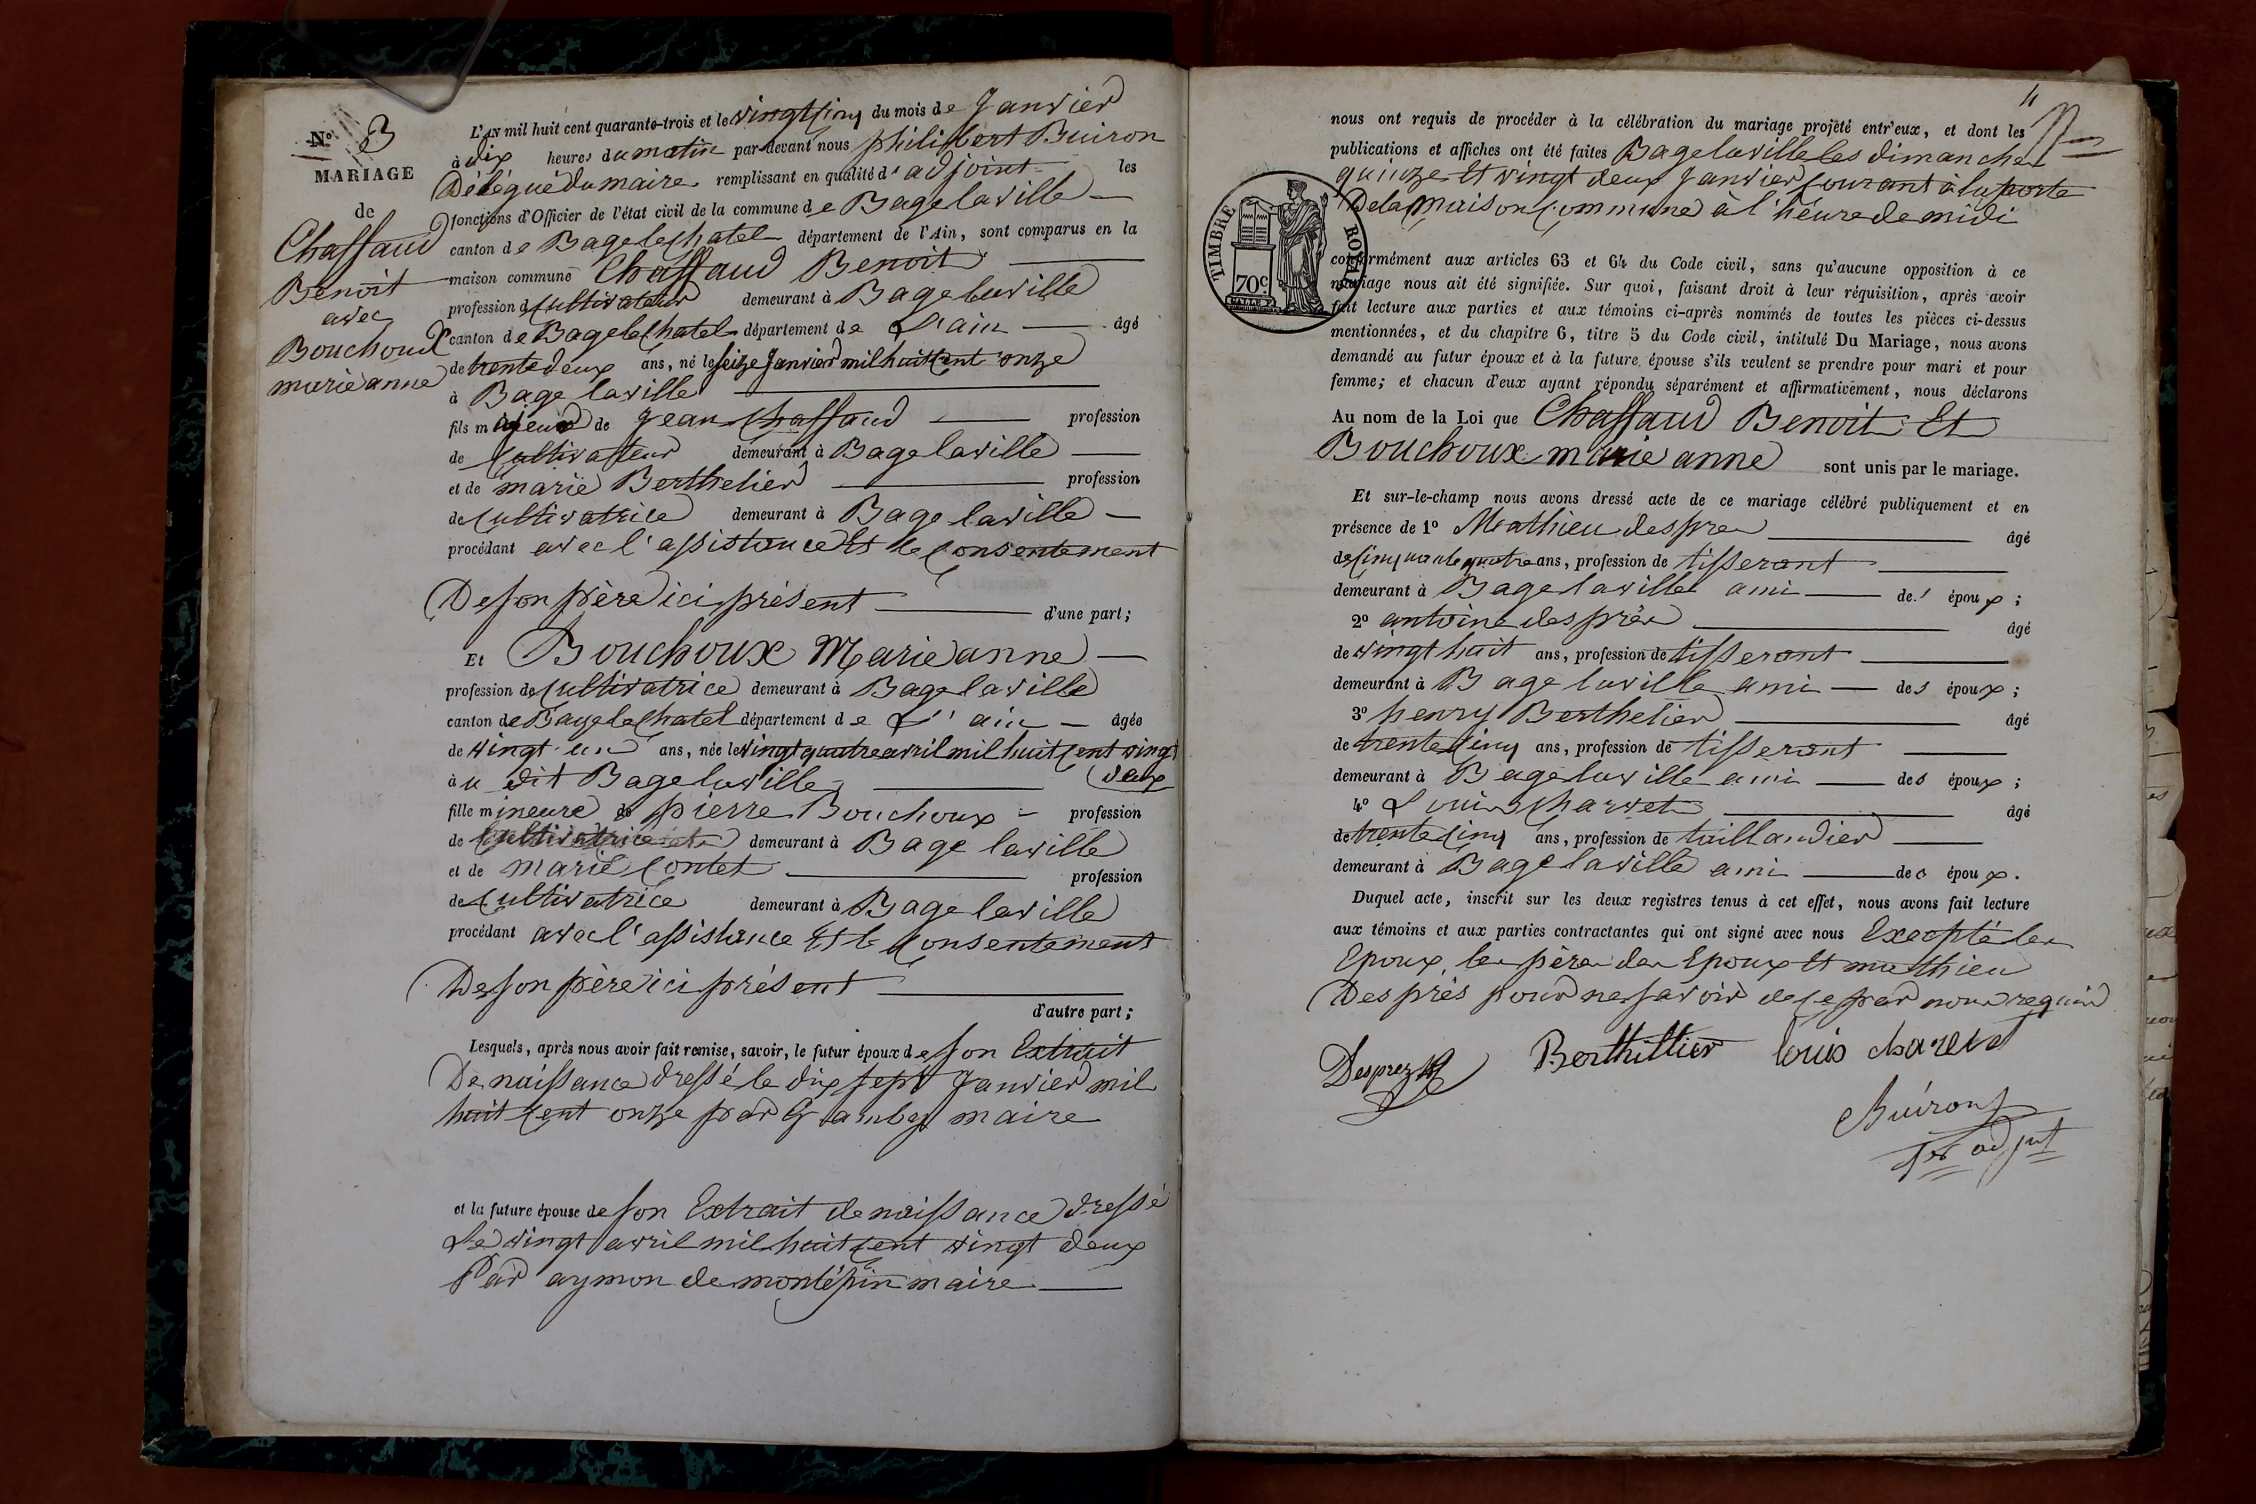 N.º 3
MARIAGE
de
Chaffaud
Benoit
avec
Bouchoux
marie anne
L'AN mil huit cent quarante-trois et le vingt cinq du mois de Janvier
à dix heures du matin par-devant nous philibert Buiron
Délégué du maire remplissant en qualité d'adjoint les
fonctions d'Officier de l'état civil de la commune de Bagelaville
canton de Bagelechatel département de l'Ain, sont comparus en la
maison commune Chaffaud Benoit
profession de cultivateur demeurant à Bagelaville
canton de Bagelechatel département de L'ain âgé
de trente deux ans, né le seize Janvier mil huit cent onze
à Bagelaville
fils majeur de Jean Chaffaud profession
de cultivateur demeurant à Bagelaville
et de marie Berthelier profession
de cultivatrice demeurant à Bagelaville
procédant avec l'assistance Et le consentement
De son père ici présent d'une part;
Et Bouchoux Marie anne
profession de cultivatrice demeurant à Bagelaville
canton de Bagelechatel département de L'ain âgée
de vingt un ans, née le vingt quatre avril mil huit cent vingt
deux
à u dit Bagelaville
fille mineure de pierre Bouchoux profession
de demeurant à Bagelaville
et de marie Contet profession
de cultivatrice demeurant à Bagelaville
procédant avec l'assistance Et le consentement
De son père ici présent
d'autre part;
Lesquels, après nous avoir fait remise, savoir, le futur époux de son Extrait
De naissance dressé le dix sept Janvier mil
huit cent onze par maire
et la future épouse de son Extrait de naissance dressé
Le vingt avril mil huit cent vingt deux
Par aymon de montépin maire
4
nous ont requis de procéder à la célébration du mariage projeté entr'eux, et dont les
publications et affiches ont été faites Bagelaville les dimanches
quinze Et vingt deux Janvier courant à la porte
De la maison commune à l'héure de midi
TIMBRE ROYAL
70c
conformément aux articles 63 et 64 du Code civil, sans qu'aucune opposition à ce
mariage nous ait été signifiée. Sur quoi, faisant droit à leur réquisition, après avoir
fait lecture aux parties et aux témoins ci-après nommés de toutes les pièces ci-dessus
mentionnées, et du chapitre 6, titre 5 du Code civil, intitulé Du Mariage, nous avons
demandé au futur époux et à la future épouse s'ils veulent se prendre pour mari et pour
femme; et chacun d'eux ayant répondu séparément et affirmativement, nous déclarons
Au nom de la Loi que Chaffaud Benoit Et
Bouchoux marie anne sont unis par le mariage.
Et sur-le-champ nous avons dressé acte de ce mariage célébré publiquement et en
présence de 1º Mathieu despres âgé
de cinquante quatre ans, profession de tisserant
demeurant à Bagelaville ami de l' époux;
2º antoine desprès âgé
de vingt huit ans, profession de tisserant
demeurant à Bagelaville ami des époux;
3º henry Berthelier âgé
de trente cinq ans, profession de tisserant
demeurant à Bagelaville ami des époux;
4º Louis Charvet âgé
de trente cinq ans, profession de taillandier
demeurant à Bagelaville ami des époux.
Duquel acte, inscrit sur les deux registres tenus à cet effet, nous avons fait lecture
aux témoins et aux parties contractantes qui ont signé avec nous Excepté les
Epoux, les pères des Epoux Et mathieu
Desprès pour ne savoir de ce par nous requis
Desprez Berthillier louis charvet
Buiron
1er adjnt